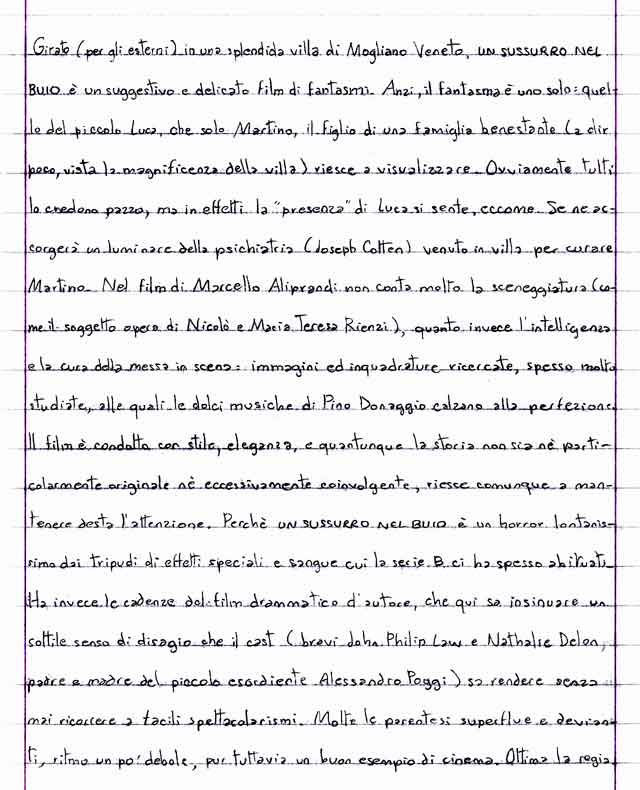 Girato (per gli esterni) in una splendida villa di Mogliano Veneto, UN SUSSURRO NEL
BUIO è un suggestivo e delicato film di fantasmi. Anzi, il fantasma è uno solo: quel-
lo del piccolo Luca, che solo Martino, il figlio di una famiglia benestante (a dir
poco, vista la magnificenza della villa) riesce a visualizzare. Ovviamente tutti
lo credono pazzo, ma in effetti la "presenza" di Luca si sente, eccome. Se ne ac-
corgerà un luminare della psichiatria (Joseph Cotten) venuto in villa per curare
Martino. Nel film di Marcello Aliprandi non conta molto la sceneggiatura (co-
me il soggetto opera di Nicolò e Maria Teresa Rienzi), quanto invece l'intelligenza
e la cura della messa in scena: immagini ed inquadrature ricercate, spesso molto
studiate, alle quali le dolci musiche di Pino Donaggio calzano alla perfezione.
Il film è condotto con stile, eleganza, e quantunque la storia non sia nè parti-
colarmente originale nè eccessivamente coinvolgente, riesce comunque a man-
tenere desta l'attenzione. Perchè UN SUSSURRO NEL BUIO è un horror lontanis-
simo dai tripudi di effetti speciali e sangue cui la serie B ci ha spesso abituati.
Ha invece le cadenze del film drammatico d'autore, che qui sa insinuare un
sottile senso di disagio che il cast (bravi John Philip Law e Nathalie Delon,
padre e madre del piccolo esordiente Alessandro Poggi) sa rendere senza
mai ricorrere a facili spettacolarismi. Molte le parentesi superflue e devian-
ti, ritmo un po' debole, pur tuttavia un buon esempio di cinema. Ottima la regia.